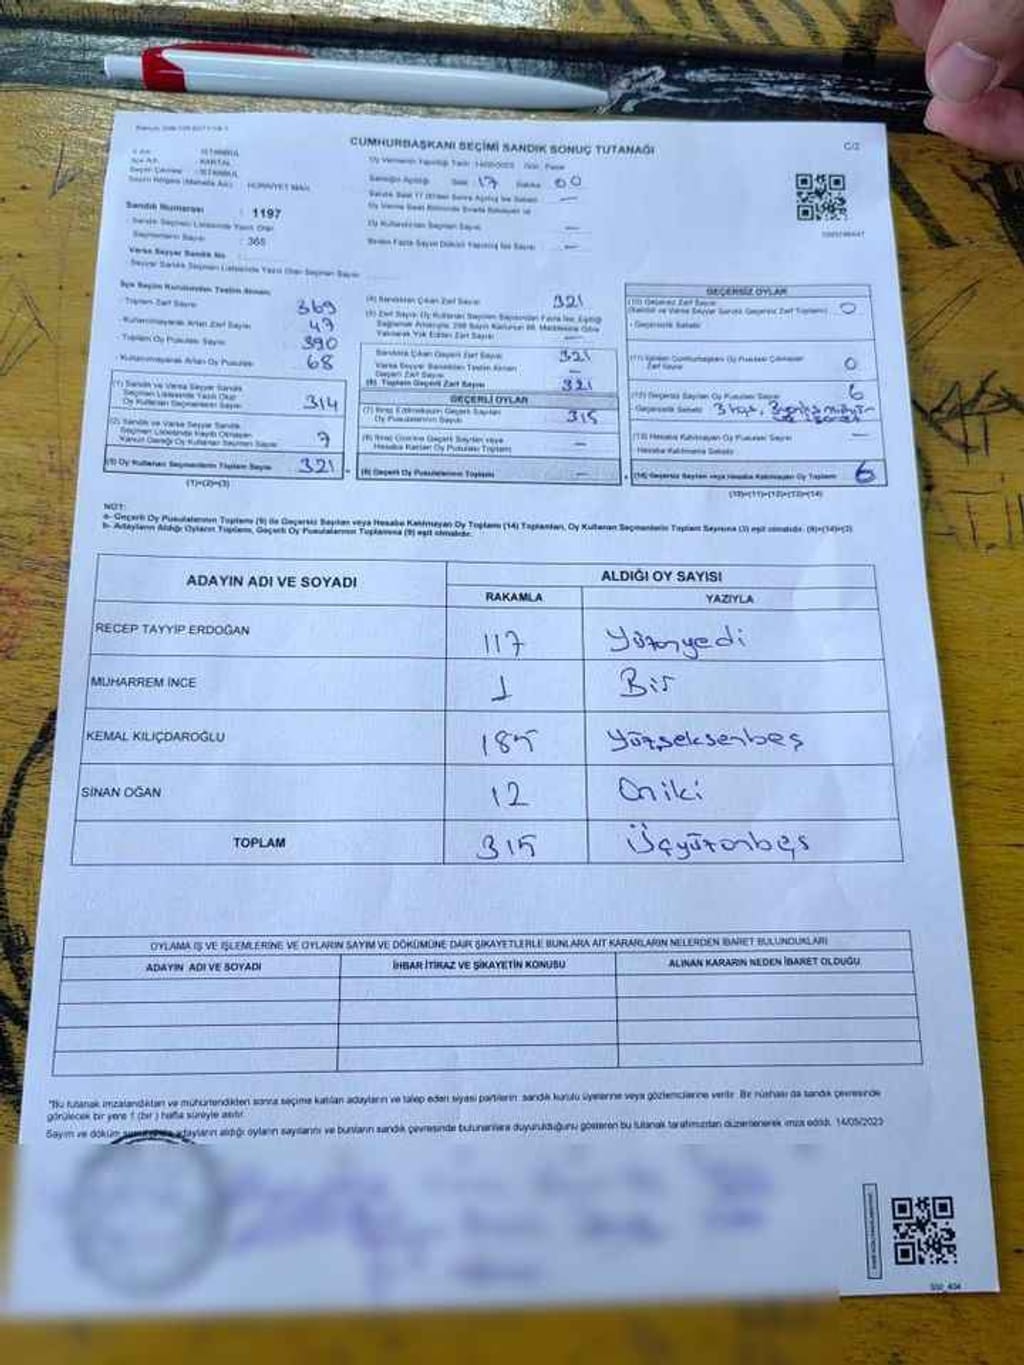 CUMHURBAŞKANI SEÇİMİ SANDIK SONUÇ TUTANAĞI
C/2
İSTANBUL
KARTAL
İSTANBUL
HÜRRİYET MAH
Oy Vermenin Yapıldığı Tarih 14/05/2023 Gün: Pazar
Saat 17 Dakika 00
Sandık Numarası : 1197
Sandık Seçmen Listesinde Yazılı Olan
Seçmenlerin Sayısı : 365
Varsa Seyyar Sandık No
Seyyar Sandık Seçmen Listesinde Yazılı Olan Seçmen Sayısı
İlçe Seçim Kurulundan Teslim Alınan;
- Toplam Zarf Sayısı 369
- Kullanılmayarak Artan Zarf Sayısı
- Toplam Oy Pusulası Sayısı 390
- Kullanılmayarak Artan Oy Pusulası 68
(1) Sandık ve Varsa Seyyar Sandık
Seçmen Listesinde Yazılı Olup
Oy Kullanan Seçmenlerin Sayısı 314
(2) Sandık ve Varsa Seyyar Sandık
Seçmen Listesinde Kayıtlı Olmayan
Kanun Gereği Oy Kullanan Seçmenlerin Sayısı 7
(3) Oy Kullanan Seçmenlerin Toplam Sayısı 321
(1)+(2)=(3)
(4) Sandıktan Çıkan Zarf Sayısı 321
Sandıkta Çıkan Geçerli Zarf Sayısı 321
Varsa Seyyar Sandıktan Teslim Alınan
Geçerli Zarf Sayısı —
(6) Toplam Geçerli Zarf Sayısı 321
GEÇERLİ OYLAR
(7) İtiraz Edilmeksizin Geçerli Sayılan
Oy Pusulalarının Sayısı 315
(8) İtiraz Üzerine Geçerli Sayılan veya
Hesaba Katılan Oy Pusulaları Toplamı —
(9) Geçerli Oy Pusulalarının Toplamı —
GEÇERSİZ OYLAR
(10) Geçersiz Zarf Sayısı
(Sandık ve Varsa Seyyar Sandık Geçersiz Zarf Toplamı) 0
- Geçersizlik Sebebi
Zarf Sayısı 0
(12) Geçersiz Sayılan Oy Pusulası Sayısı 6
Geçersizlik Sebebi 3 boş,
(13) Hesaba Katılmayan Oy Pusulası Sayısı —
Hesaba Katılmama Sebebi
(14) Geçersiz Sayılan veya Hesaba Katılmayan Oy Toplamı 6
(10)+(11)+(12)+(13)=(14)
NOT:
a- Geçerli Oy Pusulalarının Toplamı (9) ile Geçersiz Sayılan veya Hesaba Katılmayan Oy Toplamı (14) Toplamları, Oy Kullanan Seçmenlerin Toplam Sayısına (3) eşit olmalıdır. (9)+(14)=(3)
b- Adayların Aldığı Oyların Toplamı, Geçerli Oy Pusulalarının Toplamına (9) eşit olmalıdır.
ADAYIN ADI VE SOYADI
ALDIĞI OY SAYISI
RAKAMLA YAZIYLA
RECEP TAYYİP ERDOĞAN 117 Yüzonyedi
MUHARREM İNCE 1 Bir
KEMAL KILIÇDAROĞLU 185 Yüzseksenbeş
SİNAN OĞAN 12 Oniki
TOPLAM 315 Üçyüzonbeş
OYLAMA İŞ VE İŞLEMLERİNE VE OYLARIN SAYIM VE DÖKÜMÜNE DAİR ŞİKAYETLERLE BUNLARA AİT KARARLARIN NELERDEN İBARET BULUNDUKLARI
ADAYIN ADI VE SOYADI İHBAR İTİRAZ VE ŞİKAYETİN KONUSU ALINAN KARARIN NEDEN İBARET OLDUĞU
*Bu tutanak imzalandıktan ve mühürlendikten sonra seçime katılan adayların ve talep eden siyasi partilerin sandık kurulu üyelerine veya gözlemcilerine verilir. Bir nüshası da sandık çevresinde
görülecek bir yere 1 (bir) hafta süreyle asılır.
Sayım ve döküm adayların aldığı oyların sayılarını ve bunların sandık çevresinde bulunanlara duyurulduğunu gösteren bu tutanak tarafımızdan düzenlenerek imza edildi. 14/05/2023